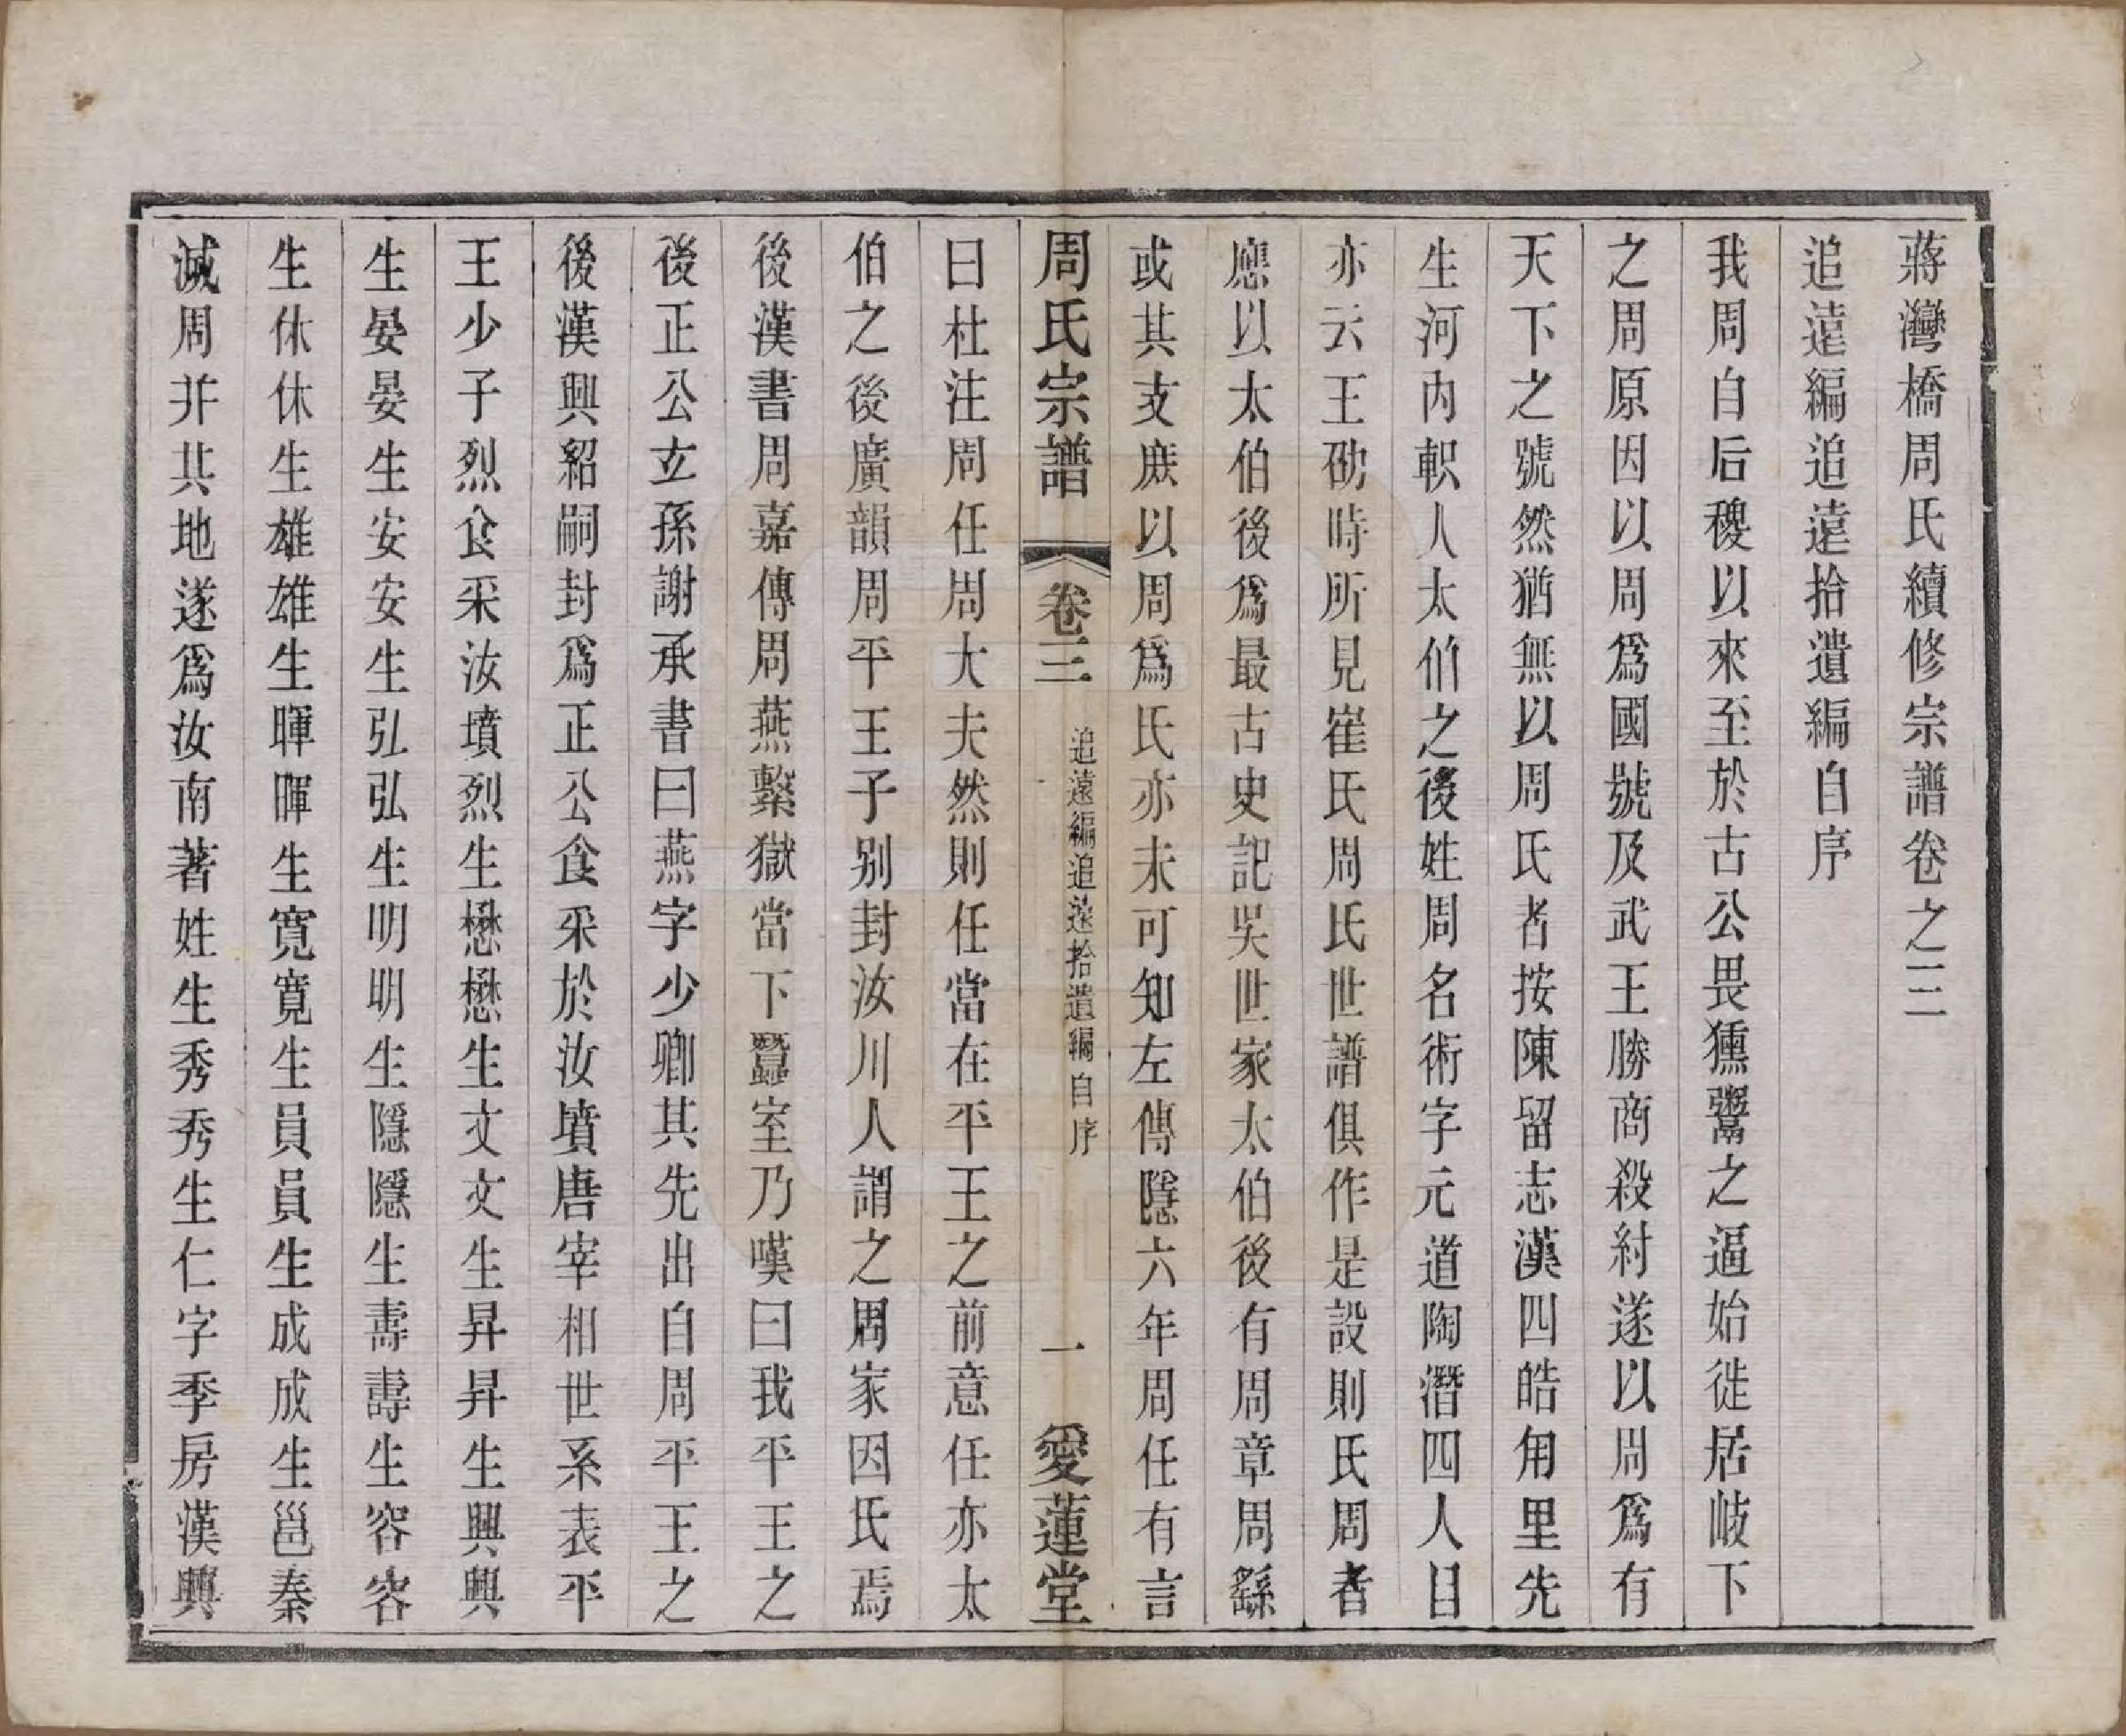 蔣灣橋周氏續修宗譜卷之三
追遠編追遠拾遺編自序
我周自后稷以來至於古公畏獯鬻之逼始徙居岐下
之周原因以周爲國號及武王勝商殺紂遂以周爲有
天下之號然猶無以周氏者按陳留志漢四皓甪里先
生河內軹人太伯之後姓周名術字元道陶潛四人目
亦云王劭時所見崔氏周氏世譜俱作是說則氏周者
應以太伯後爲最古史記吳世家太伯後有周章周繇
或其支庶以周爲氏亦未可知左傳隱六年周任有言
周氏宗譜 卷三 追遠編追遠拾遺編自序 一 愛蓮堂
曰杜注周任周大夫然則任當在平王之前意任亦太
伯之後廣韻周平王子別封汝川人謂之周家因氏焉
後漢書周嘉傳周燕繫獄當下蠶室乃嘆曰我平王之
後正公玄孫謝承書曰燕字少卿其先出自周平王之
後漢興紹嗣封爲正公食采於汝墳唐宰相世系表平
王少子烈食采汝墳烈生懋懋生文文生昇昇生興興
生晏晏生安安生弘弘生明明生隱隱生壽壽生容容
生休休生雄雄生暉暉生寬寬生員員生成成生邕秦
滅周并其地遂爲汝南著姓生秀秀生仁字季房漢興